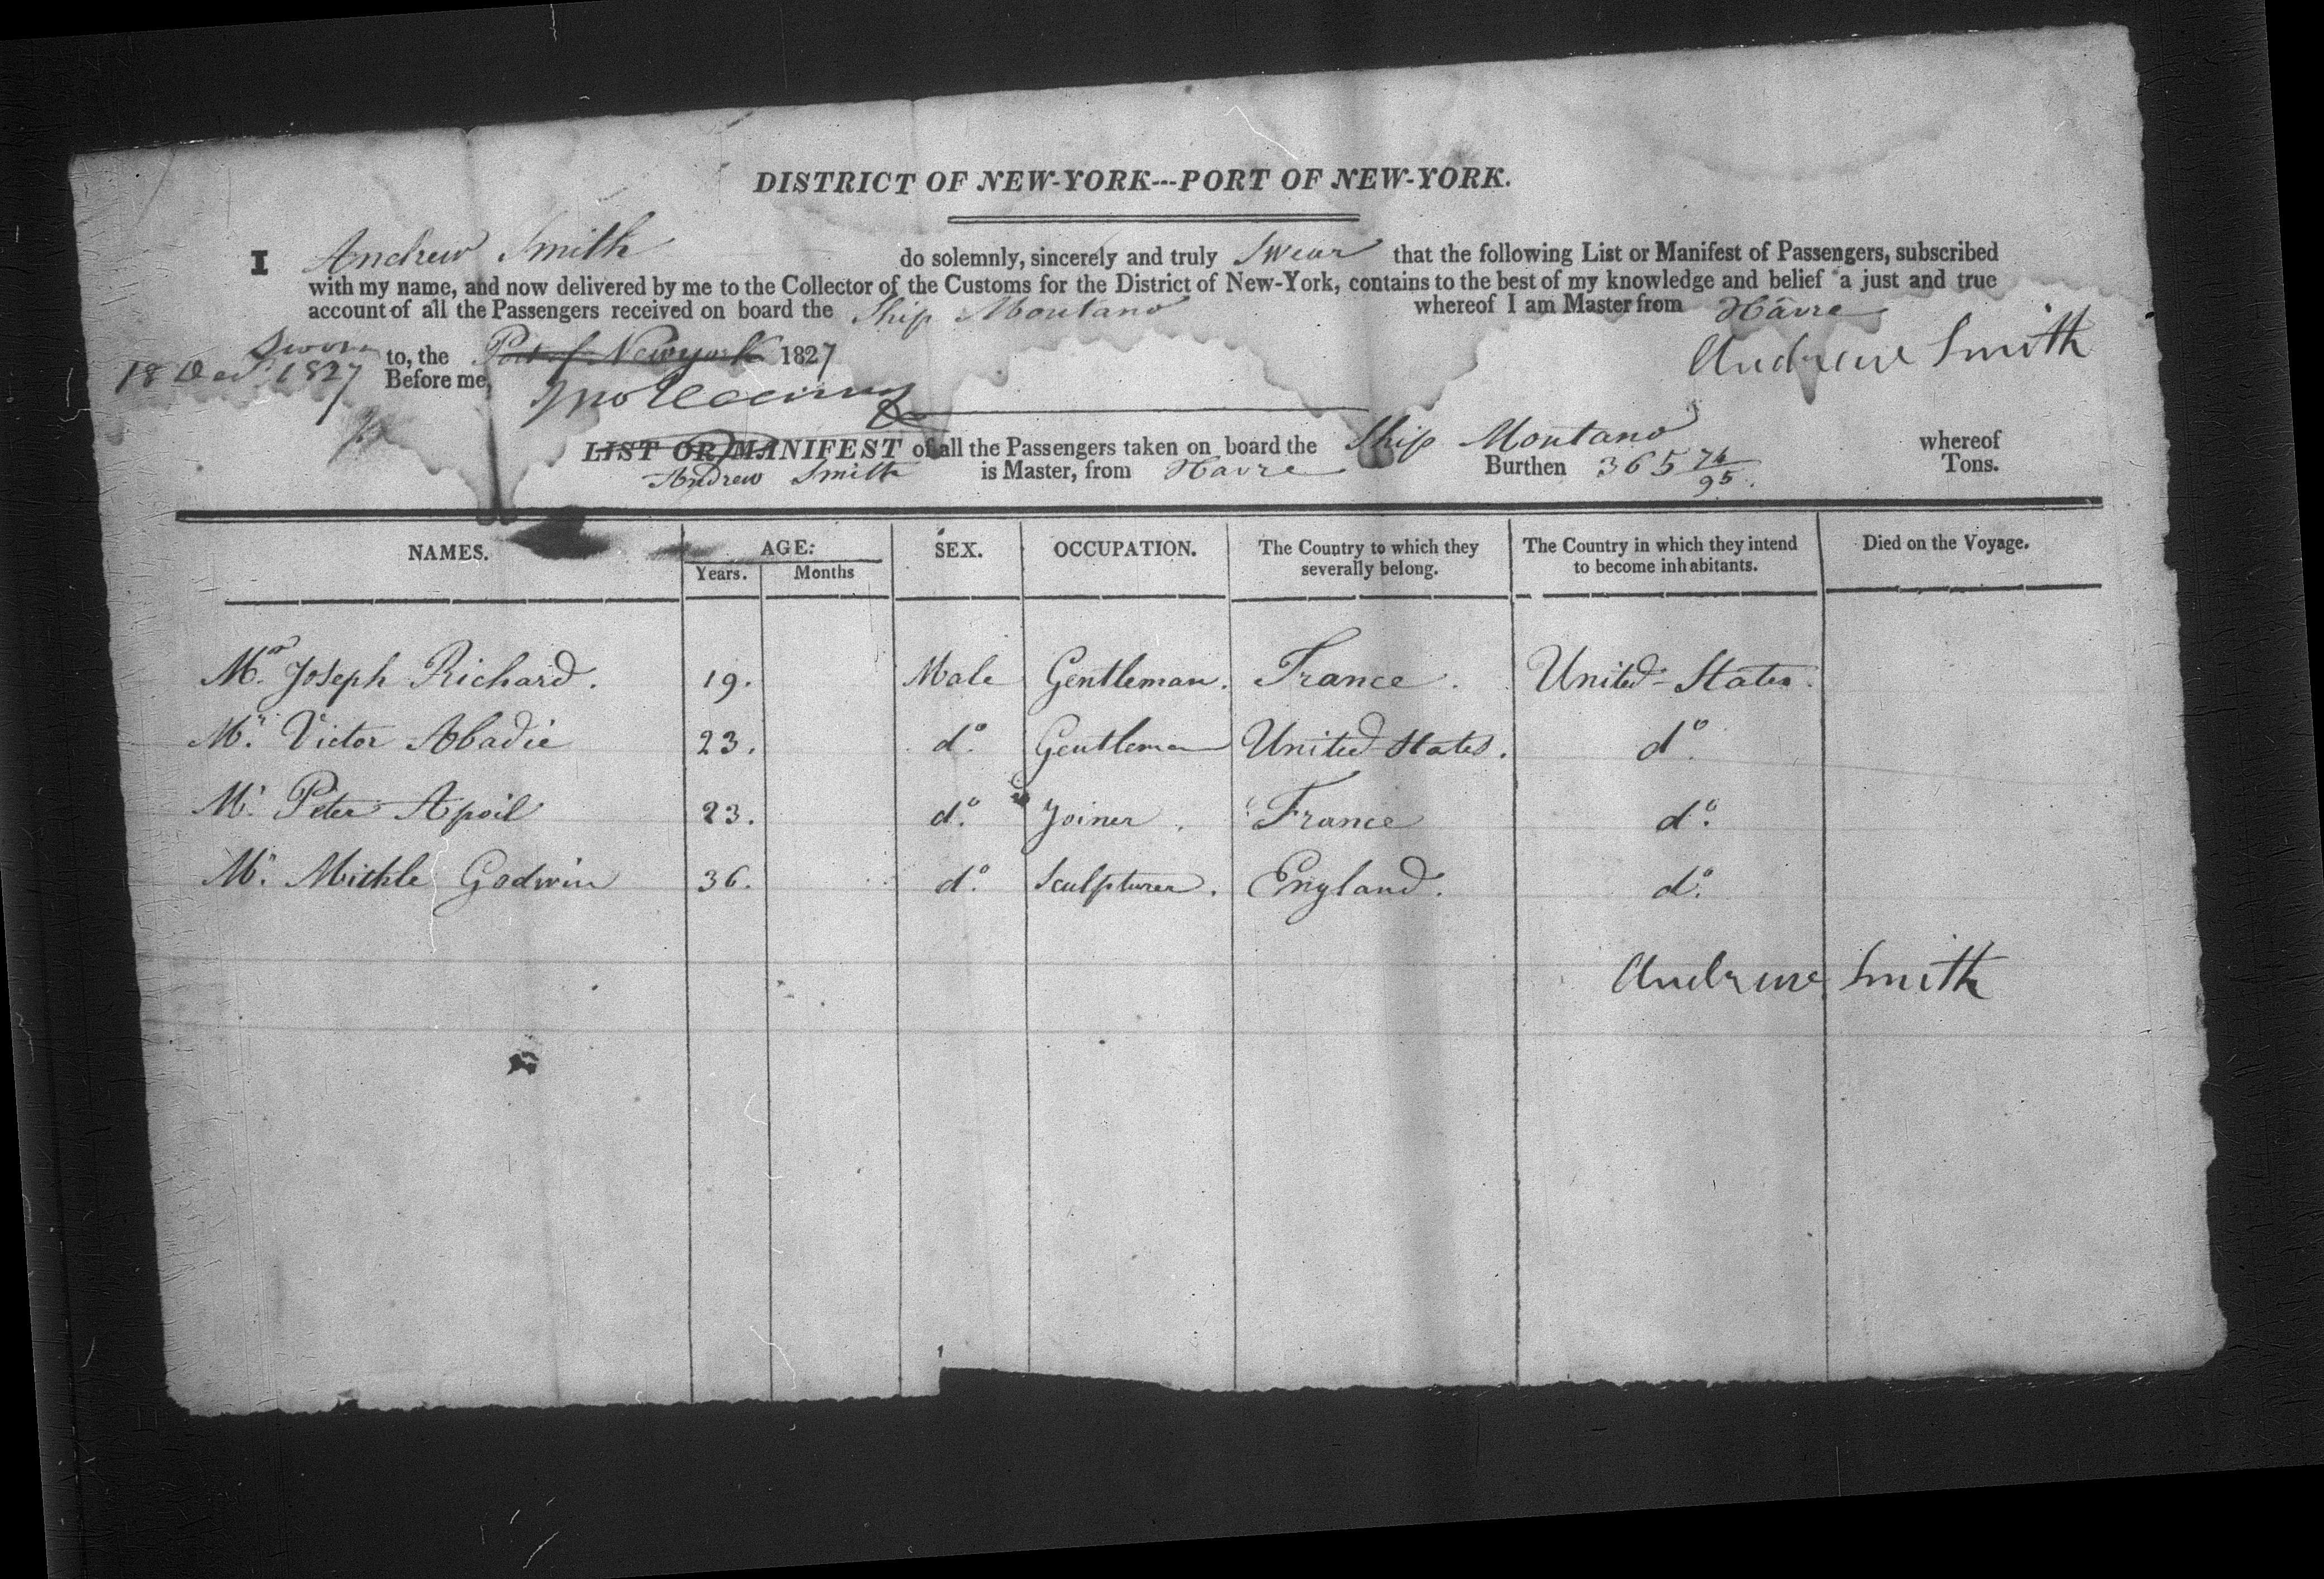 DISTRICT OF NEW-YORK---PORT OF NEW-YORK.
I Andrew Smith do solemnly, sincerely and truly Swear that the following List or Manifest of Passengers, subscribed
with my name, and now delivered by me to the Collector of the Customs for the District of New-York, contains to the best of my knowledge and belief a just and true
account of all the Passengers received on board the Ship Montano whereof I am Master from Havre
Sworn to, the Port of Newyork 1827 Andrew Smith
18 Dec. 1827 Before me,
LIST OR MANIFEST of all the Passengers taken on board the Ship Montano whereof
Andrew Smith is Master, from Havre Burthen 365 Tons.
NAMES. AGE: SEX. OCCUPATION. The Country to which they severally belong. The Country in which they intend to become inhabitants. Died on the Voyage.
Years. Months
Mr. Joseph Richard. 19. Male Gentleman. France. United-States.
Mr. Victor Abadie 23. do. Gentleman United States. do.
Mr. Peter Apoil 23. do. Joiner. France do.
Mr. Mickle Godwin 36. do. Sculpturer. England. do.
Andrew Smith